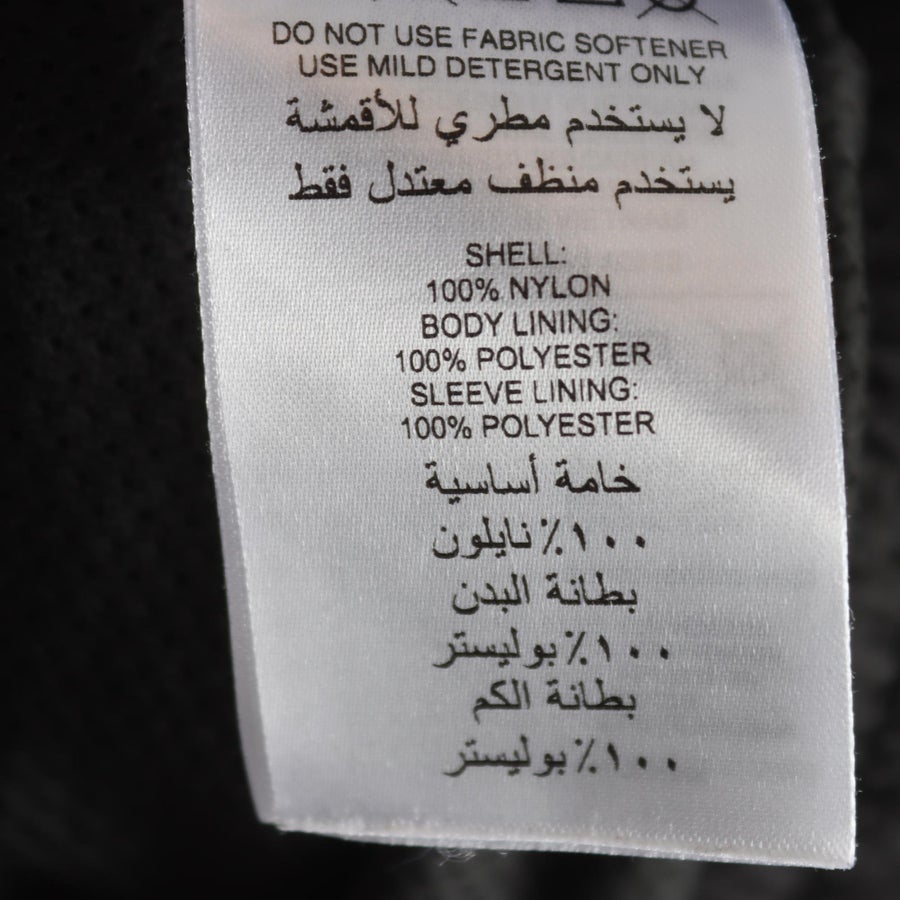 DO NOT USE FABRIC SOFTENER
USE MILD DETERGENT ONLY
لا يستخدم مطري للأقمشة
يستخدم منظف معتدل فقط
SHELL:
100% NYLON
BODY LINING:
100% POLYESTER
SLEEVE LINING:
100% POLYESTER
خامة أساسية
١٠٠٪ نايلون
بطانة البدن
١٠٠٪ بوليستر
بطانة الكم
١٠٠٪ بوليستر